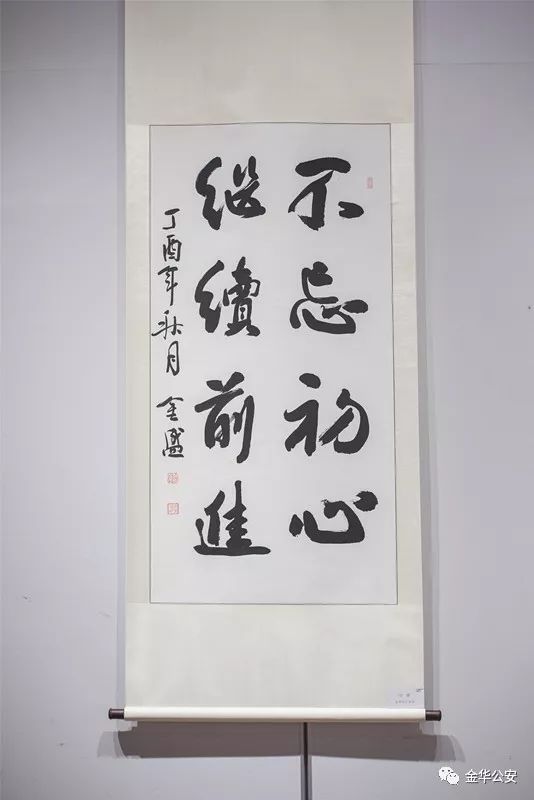 不忘初心
继續前進
丁酉年秋月 金盛
金华公安